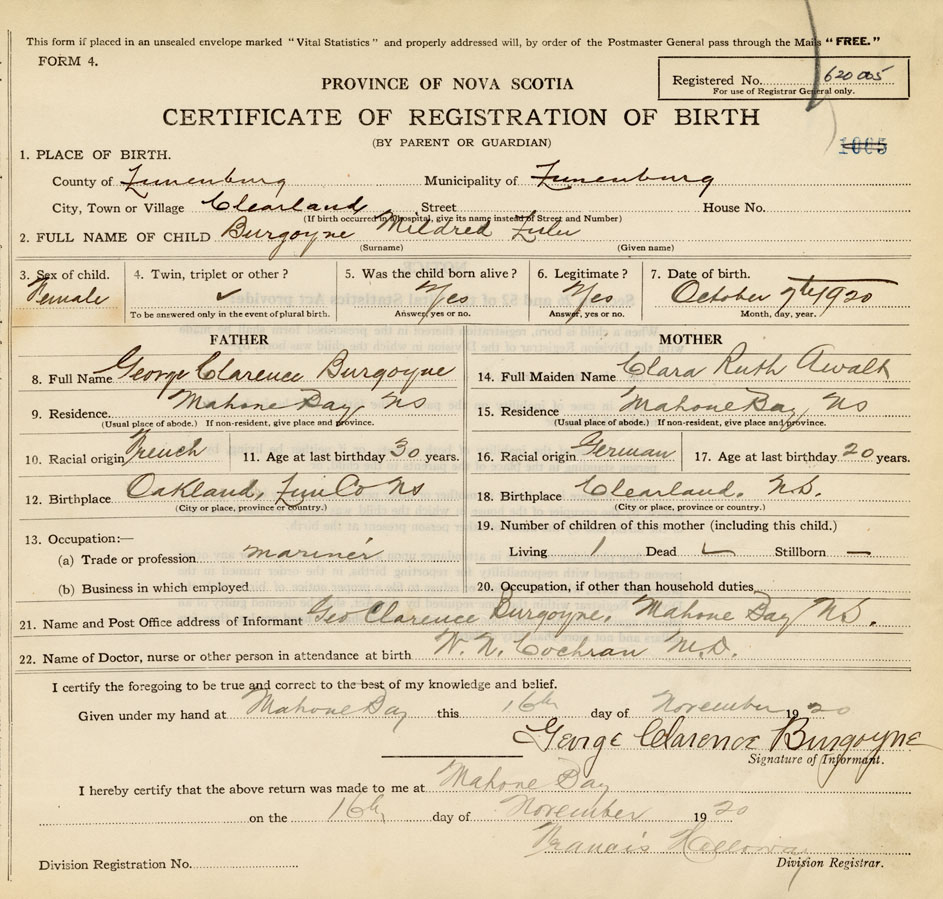 This form if placed in an unsealed envelope marked "Vital Statistics" and properly addressed will, by order of the Postmaster General pass through the Mails "FREE."
FORM 4.
Registered No. 620 005
For use of Registrar General only.
PROVINCE OF NOVA SCOTIA
CERTIFICATE OF REGISTRATION OF BIRTH
(BY PARENT OR GUARDIAN)
1005
1. PLACE OF BIRTH.
County of Lunenburg Municipality of Lunenburg
City, Town or Village Clearland Street House No.
(If birth occurred in hospital, give its name instead of Street and Number)
2. FULL NAME OF CHILD Burgoyne Mildred Lulu
(Surname) (Given name)
3. Sex of child. 4. Twin, triplet or other? 5. Was the child born alive? 6. Legitimate? 7. Date of birth.
Female ✓ Yes Yes October 7th 1920
To be answered only in the event of plural birth. Answer, yes or no. Answer, yes or no. Month, day, year.
FATHER MOTHER
8. Full Name George Clarence Burgoyne 14. Full Maiden Name Clara Ruth Awalt
9. Residence. Mahone Bay, NS 15. Residence Mahone Bay, NS
(Usual place of abode.) If non-resident, give place and province. (Usual place of abode.) If non-resident, give place and province.
10. Racial origin French 11. Age at last birthday 30 years. 16. Racial origin German 17. Age at last birthday 20 years.
12. Birthplace Oakland, Lun Co NS 18. Birthplace Clearland. N.S.
(City or place, province or country.) (City or place, province or country.)
13. Occupation:— 19. Number of children of this mother (including this child.)
(a) Trade or profession mariner Living 1 Dead — Stillborn —
(b) Business in which employed 20. Occupation, if other than household duties
21. Name and Post Office address of Informant Geo Clarence Burgoyne, Mahone Bay N.S.
22. Name of Doctor, nurse or other person in attendance at birth W. N. Cochran M.D.
I certify the foregoing to be true and correct to the best of my knowledge and belief.
Given under my hand at Mahone Bay this 16th day of November 1920
George Clarence Burgoyne
Signature of Informant.
I hereby certify that the above return was made to me at Mahone Bay
on the 16th day of November 1920
Francis Holloway
Division Registration No. Division Registrar.